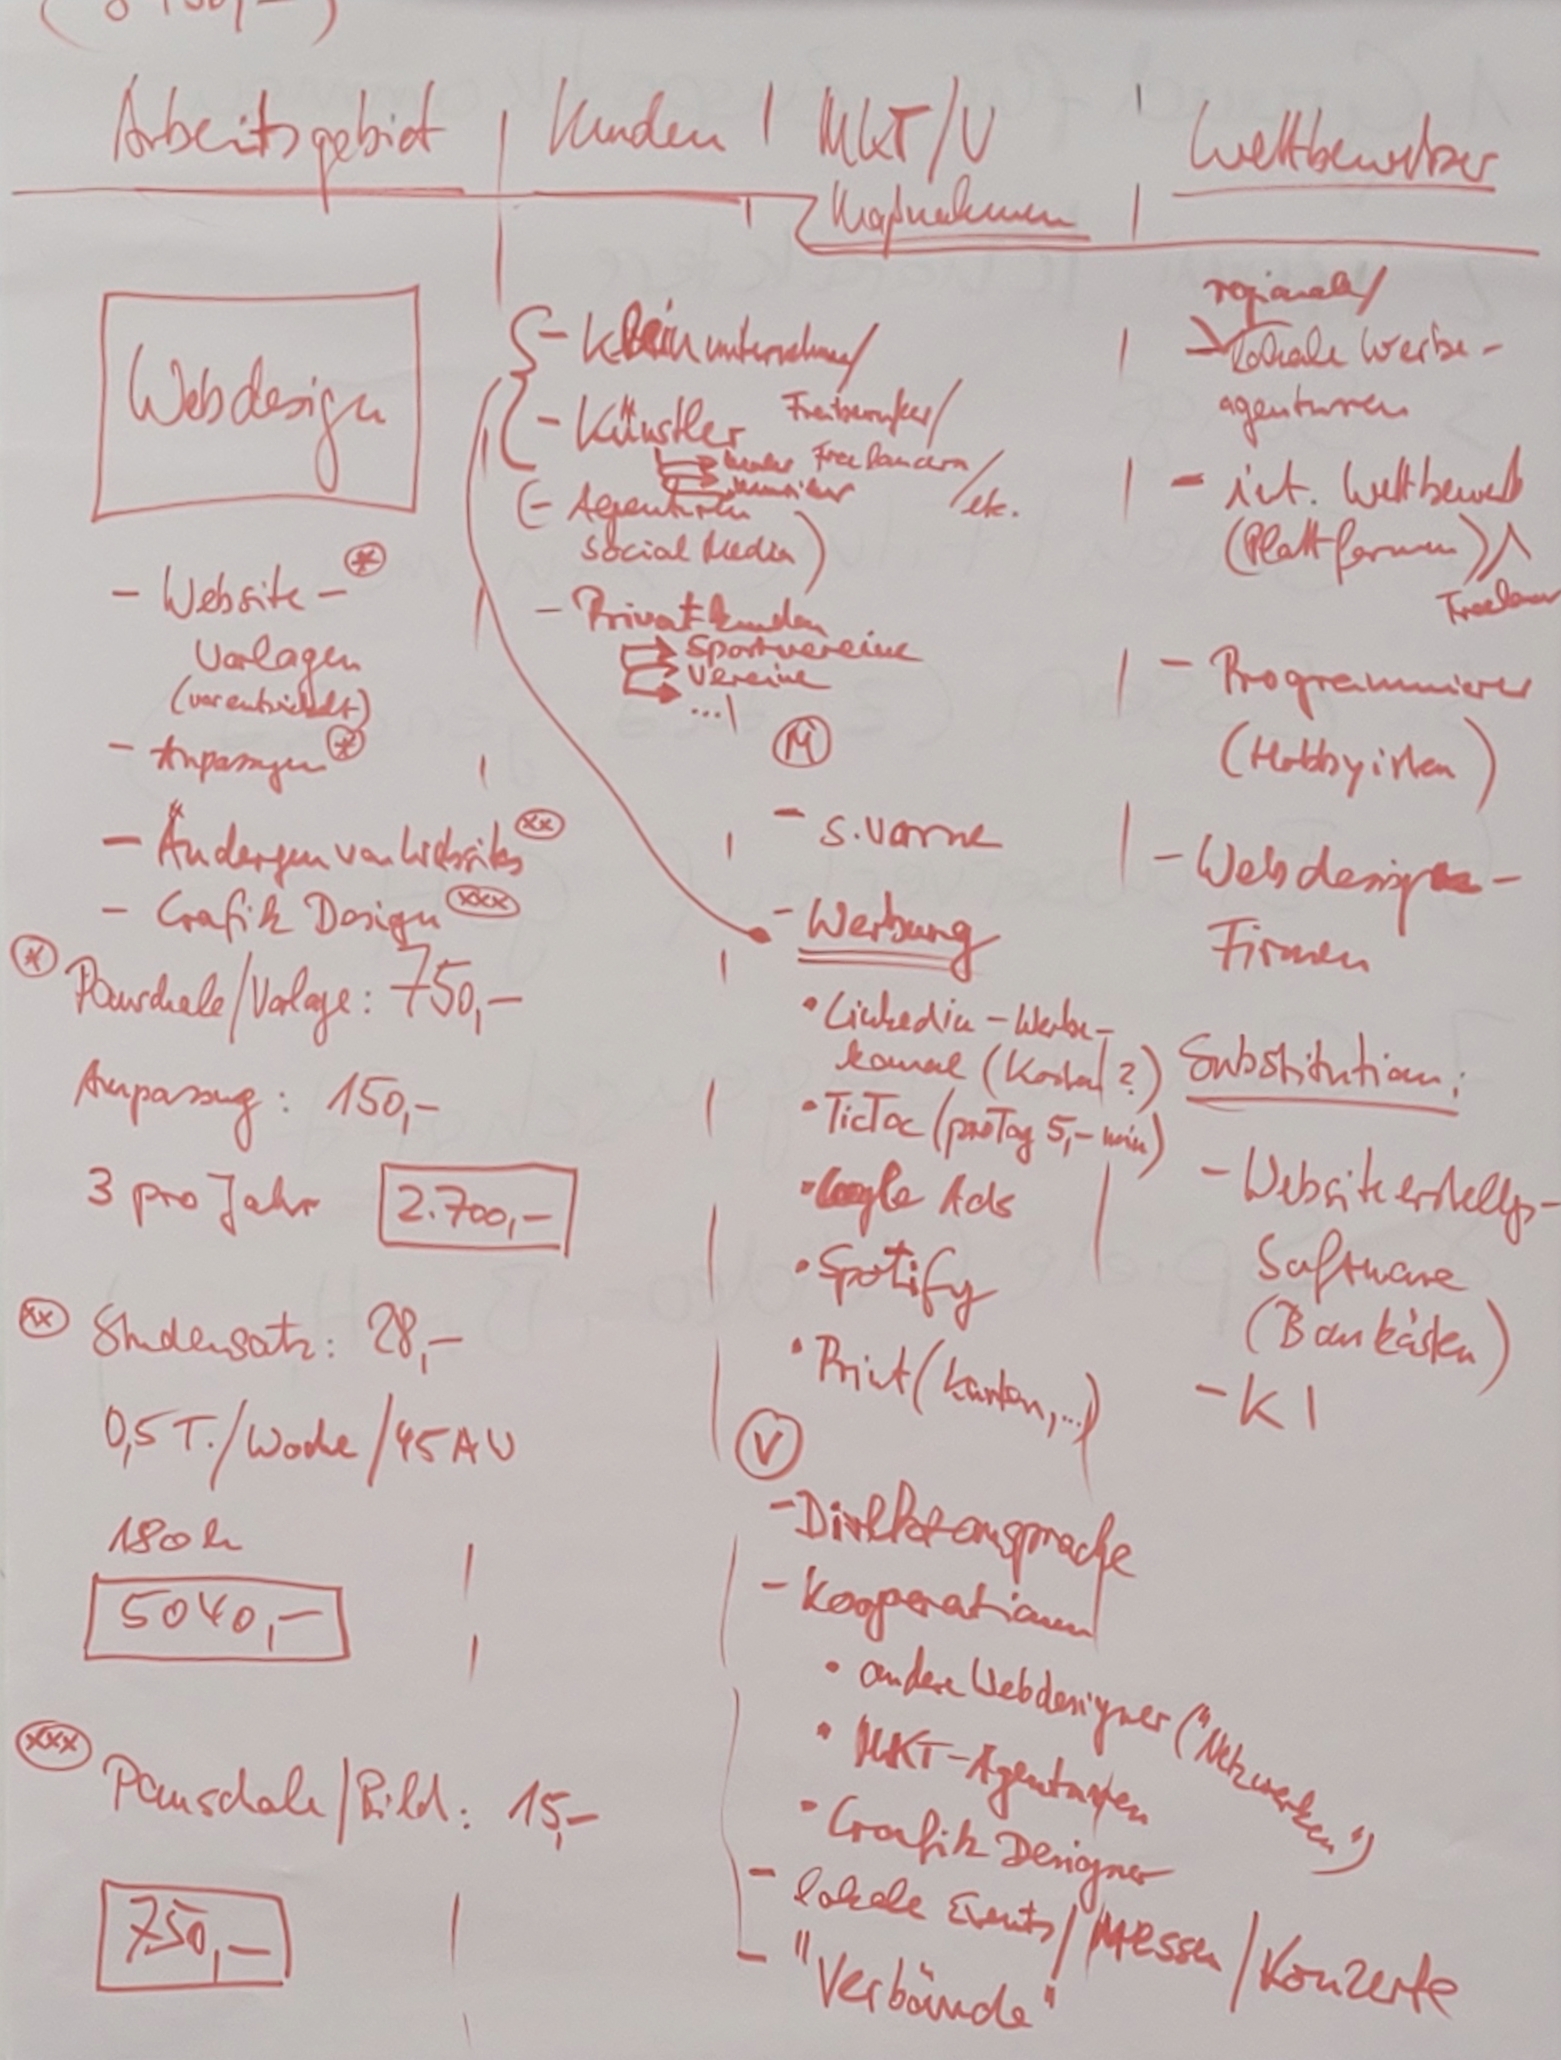 Arbeitsgebiet | Kunden | MKT/V | Wettbewerber
Maßnahmen
Webdesign
- Website - *
Vorlagen
(vorentwickelt)
- Anpassungen *
- Änderungen von Websites xx
- Grafik Design xxx
* Pauschale/Vorlage: 750,-
Anpassung: 150,-
3 pro Jahr 2.700,-
xx Stundensatz: 28,-
0,5 T./Woche/45 AW
180 h
5040,-
xxx Pauschale/Bild: 15,-
750,-
- Kleinunternehmen/
- Künstler Freiberufler/
Maler Freelancern/
Musiker etc.
(- Agenturen
Social Media)
- Privatkunden
Sportvereine
Vereine
...
M
- s. vorne
- Werbung
• Linkedin - Werbe-
kanal (Kosten?)
• TicToc (pro Tag 5,- min)
• Google Ads
• Spotify
• Print (Karten,...)
V
- Direktansprache
- Kooperationen
• andere Webdesigner ("Netzwerken")
• MKT-Agenturen
• Grafik Designer
- lokale Events/Messen/Konzerte
- "Verbände"
regionale/
- lokale Werbe-
agenturen
- int. Wettbewerb
(Plattformen)
Freelancer
- Programmierer
(Hobbyisten)
- Webdesign-
Firmen
Substitution:
- Websiteerstellgs-
Software
(Baukästen)
- KI